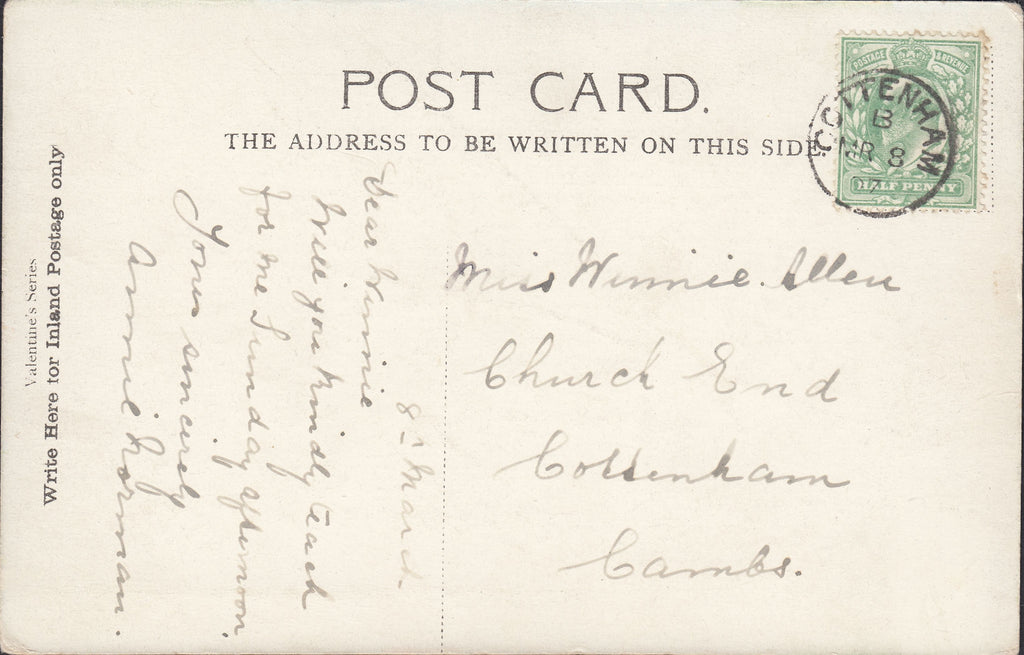 POST CARD.
THE ADDRESS TO BE WRITTEN ON THIS SIDE.
POSTAGE & REVENUE
HALF PENNY
COTTENHAM
B
MR 8
07
Valentine's Series
Write Here for Inland Postage only
8th March.
Dear Winnie
Will you kindly teach
for me Sunday afternoon.
Yours sincerely
Annie Norman.
Miss Winnie Allen
Church End
Cottenham
Cambs.